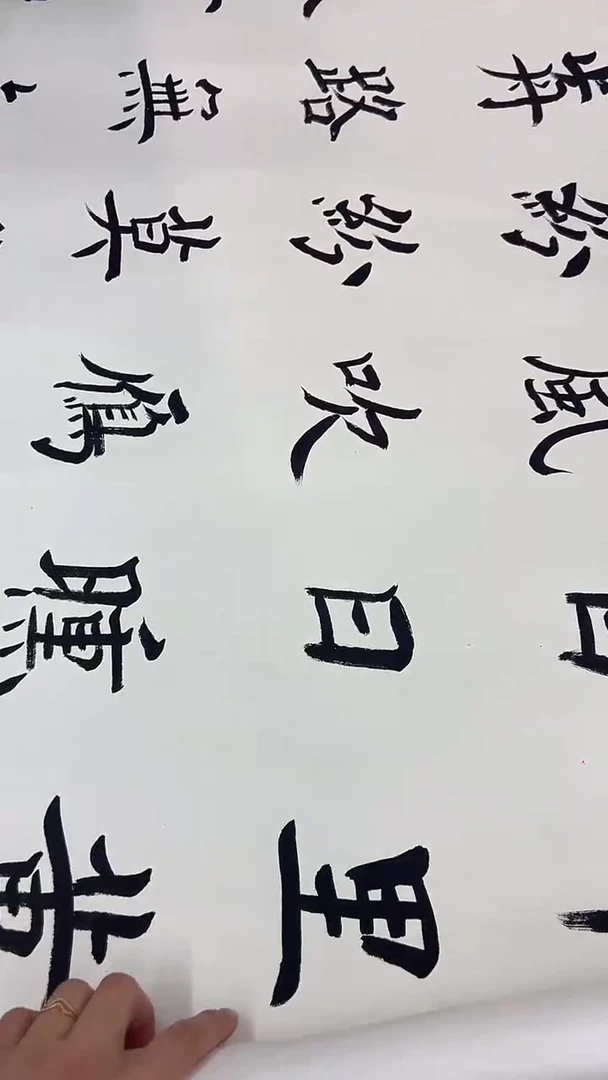 里黃
日曛
風吹雁
紛紛莫
前路無